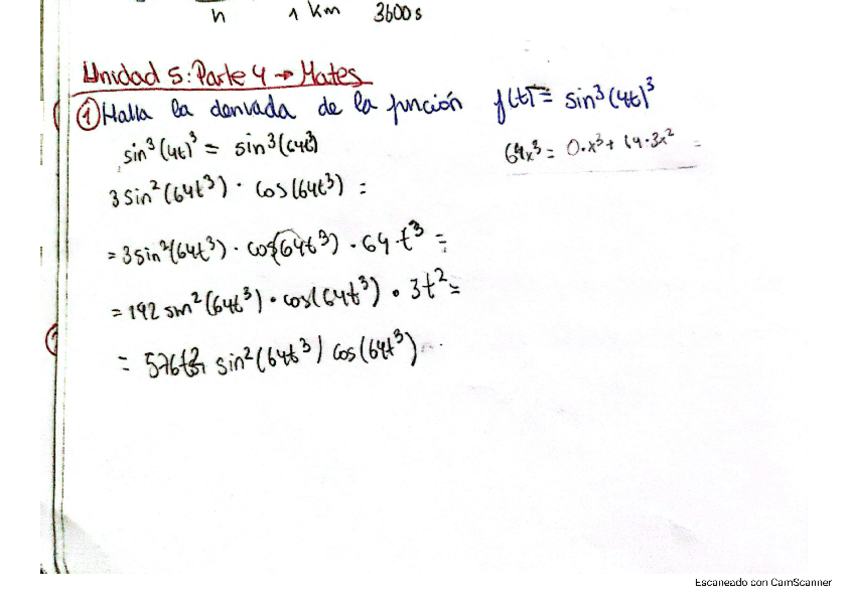 h 1 Km 3600s
Unidad 5: Parte 4 → Mates
① Halla la derivada de la función f(t) = sin³(4t)³
sin³(4t)³ = sin³(64t³)
64x³ = 0·x³ + 64·3x² =
3 sin²(64t³) · cos(64t³) =
= 3 sin²(64t³) · cos(64t³) · 64·t³ =
= 192 sin²(64t³) · cos(64t³) · 3t² =
= 576t² sin²(64t³) cos(64t³)
Escaneado con CamScanner